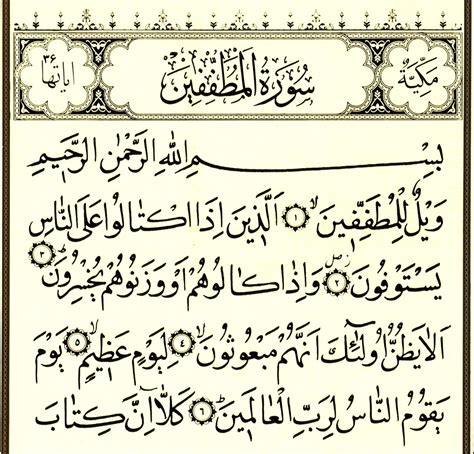 مكية سورة المطففين اياتها ٣٦
بِسْمِ اللهِ الرَّحْمٰنِ الرَّحٖيمِ
وَيْلٌ لِلْمُطَفِّفٖينَۙ ﴿١﴾ اَلَّذٖينَ اِذَا اكْتَالُوا عَلَى النَّاسِ
يَسْتَوْفُونَؗ ﴿٢﴾ وَاِذَا كَالُوهُمْ اَوْ وَزَنُوهُمْ يُخْسِرُونَؕ ﴿٣﴾
اَلَا يَظُنُّ اُولٰٓئِكَ اَنَّهُمْ مَبْعُوثُونَۙ ﴿٤﴾ لِيَوْمٍ عَظٖيمٍۙ ﴿٥﴾ يَوْمَ
يَقُومُ النَّاسُ لِرَبِّ الْعَالَمٖينَؕ ﴿٦﴾ كَلَّٓا اِنَّ كِتَابَ